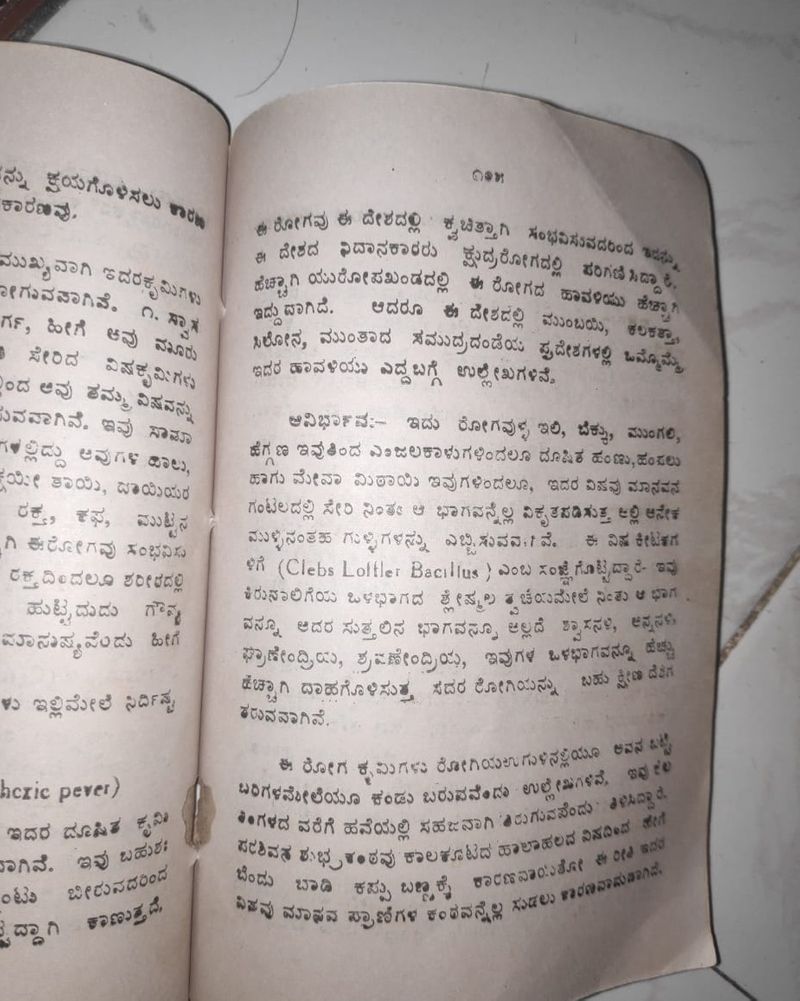 ನ್ನು ಕ್ಷಯಗೊಳಿಸಲು ಕಾರಣ
ಕಾರಣವು.
ಮುಖ್ಯವಾಗಿ ಇದರಕೃಮಿಗಳು
ೋಗುವವಾಗಿವೆ. ೧. ಸ್ವಾಸ
ರ್ಗ, ಹೀಗೆ ಆವು ಮೂರು
ಸೇರಿದ ವಿಷಕೃಮಿಗಳು
ಂದ ಆವು ತಮ್ಮ ವಿಷವನ್ನು
ುವವಾಗಿವೆ. ಇವು ಸಾಮಾ
ಗಳಲ್ಲಿದ್ದು ಅವುಗಳ ಹಾಲು,
ಕ್ಷಯೀ ತಾಯಿ, ದಾಯಿಯರ
ರಕ್ತ, ಕಫ, ಮುಟ್ಟಿನ
ಗಿ ಈರೋಗವು ಸಂಭವಿಸು
ರಕ್ತದಿಂದಲೂ ಶರೀರದಲ್ಲಿ
ಹುಟ್ಟದುದು ಗೌನ್ಯ
ಮಾನುಷ್ಯವೆಂದು ಹೀಗೆ
ಳು ಇಲ್ಲಿಮೇಲೆ ನಿರ್ದಿಷ್ಟ
heric pever)
ಇದರ ದೂಷಿತ ಕೃಮಿ
ದಾಗಿವೆ. ಇವು ಬಹುಶಃ
ಂಟು ಬೀರುವದರಿಂದ
ದ್ದಾಗಿ ಕಾಣುತ್ತದೆ.
೧೨೫
ಈ ರೋಗವು ಈ ದೇಶದಲ್ಲಿ ಕ್ವಚಿತ್ತಾಗಿ ಸಂಭವಿಸುವದರಿಂದ ಇದನ್ನು
ಈ ದೇಶದ ನಿದಾನಕಾರರು ಕ್ಷುದ್ರರೋಗದಲ್ಲಿ ಪರಿಗಣಿಸಿದ್ದಾರೆ.
ಹೆಚ್ಚಾಗಿ ಯುರೋಪಖಂಡದಲ್ಲಿ ಈ ರೋಗದ ಹಾವಳಿಯು ಹೆಚ್ಚಾಗಿ
ಇದ್ದುದಾಗಿದೆ. ಆದರೂ ಈ ದೇಶದಲ್ಲಿ ಮುಂಬಯಿ, ಕಲಕತ್ತಾ,
ಸಿಲೋನ, ಮುಂತಾದ ಸಮುದ್ರದಂಡೆಯ ಪ್ರದೇಶಗಳಲ್ಲಿ ಒಮ್ಮೊಮ್ಮೆ
ಇದರ ಹಾವಳಿಯು ಎದ್ದಬಗ್ಗೆ ಉಲ್ಲೇಖಗಳಿವೆ.
ಆವಿರ್ಭಾವ:- ಇದು ರೋಗವುಳ್ಳ ಇಲಿ, ಬೆಕ್ಕು, ಮುಂಗಲಿ,
ಹೆಗ್ಗಣ ಇವುತಿಂದ ಎಂಜಲಕಾಳುಗಳಿಂದಲೂ ದೂಷಿತ ಹಂಣು,ಹಂಪಲು
ಹಾಗು ಮೇವಾ ಮಿಠಾಯಿ ಇವುಗಳಿಂದಲೂ, ಇದರ ವಿಷವು ಮಾನವನ
ಗಂಟಲದಲ್ಲಿ ಸೇರಿ ನಿಂತು ಆ ಭಾಗವನ್ನೆಲ್ಲ ವಿಕೃತಪಡಿಸುತ್ತ ಅಲ್ಲಿ ಅನೇಕ
ಮುಳ್ಳಿನಂತಹ ಗುಳ್ಳಿಗಳನ್ನು ಎಬ್ಬಿಸುವವಿವೆ. ಈ ವಿಷ ಕೀಟಕಗ
ಳಿಗೆ (Clebs Loffler Bacillus) ಎಂಬ ಸಂಜ್ಞೆಗೊಟ್ಟಿದ್ದಾರೆ- ಇವು
ಕಿರುನಾಲಿಗೆಯ ಒಳಭಾಗದ ಶ್ಲೇಷ್ಮಲ ತ್ವಚೆಯಮೇಲೆ ನಿಂತು ಆ ಭಾಗ
ವನ್ನೂ ಆದರ ಸುತ್ತಲಿನ ಭಾಗವನ್ನೂ ಅಲ್ಲದೆ ಶ್ವಾಸನಳಿ, ಅನ್ನನಳಿ,
ಘ್ರಾಣೇಂದ್ರಿಯ, ಶ್ರವಣೇಂದ್ರಿಯ, ಇವುಗಳ ಒಳಭಾಗವನ್ನೂ ಹೆಚ್ಚು
ಹೆಚ್ಚಾಗಿ ದಾಹಗೊಳಿಸುತ್ತ ಸದರ ರೋಗಿಯನ್ನು ಬಹು ಕ್ಷೀಣ ದೆಶೆಗೆ
ತರುವವಾಗಿವೆ.
ಈ ರೋಗ ಕೃಮಿಗಳು ರೋಗಿಯಉಗುಳಿನಲ್ಲಿಯೂ ಅವನ ಬಟ್ಟೆ
ಬರಿಗಳಮೇಲೆಯೂ ಕಂಡು ಬರುವವೆಂದು ಉಲ್ಲೇಖಗಳಿವೆ. ಇವು ಕೆಲ
ತಿಂಗಳದ ವರೆಗೆ ಹವೆಯಲ್ಲಿ ಸಹಜವಾಗಿ ತಿರುಗುವವೆಂದು ತಿಳಿಸಿದ್ದಾರೆ.
ಪರಶಿವನ ಶುಭ್ರಕಂಠವು ಕಾಲಕೂಟದ ಹಾಲಾಹಲದ ವಿಷದಿಂದ ಹೇಗೆ
ಬೆಂದು ಬಾಡಿ ಕಪ್ಪು ಬಣ್ಣಕ್ಕೆ ಕಾರಣವಾಯತೋ ಈ ರೀತಿ ಇದರ
ವಿಷವು ಮಾನವ ಪ್ರಾಣಿಗಳ ಕಂಠವನ್ನೆಲ್ಲ ಸುಡಲು ಕಾರಣವಾದುದಾಗಿದೆ.